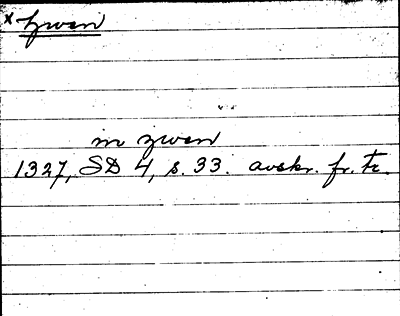 x Zwen
m zwen
1327, SD 4, s. 33. avskr. fr. tr.